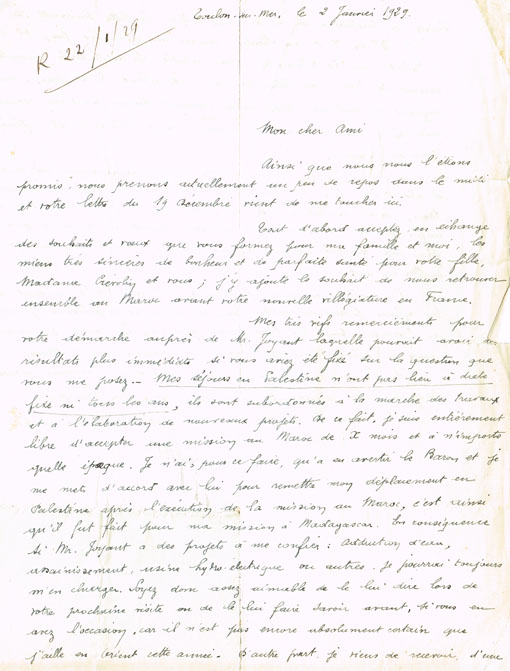 Toulon-sur-Mer, le 2 Janvier 1929.
R 22/1/29
Mon cher Ami
Ainsi que nous nous l'étions
promis, nous prenons actuellement un peu de repos dans le midi
et votre lettre du 19 Décembre vient de me toucher ici.
Tout d'abord acceptez en échange
des souhaits et vœux que vous formez pour ma famille et moi, les
miens très sincères de bonheur et de parfaite santé pour votre fille,
Madame et vous ; j'y ajoute le souhait de nous retrouver
ensemble au Maroc avant votre nouvelle villégiature en France.
Mes très vifs remerciements pour
votre démarche auprès de Mr. Joyant laquelle pourrait avoir des
résultats plus immédiats si vous aviez été fixé sur la question que
vous me posez. - Mes séjours en Palestine n'ont pas lieu à date
fixe ni tous les ans, ils sont subordonnés à la marche des travaux
et à l'élaboration de nouveaux projets. De ce fait, je suis entièrement
libre d'accepter une mission au Maroc de X mois et à n'importe
quelle époque. Je n'ai, pour ce faire, qu'à en avertir le Baron et je
me mets d'accord avec lui pour remettre mon déplacement en
Palestine après l'exécution de la mission au Maroc, c'est ainsi
qu'il fut fait pour ma mission à Madagascar. En conséquence
si Mr. Joyant a des projets à me confier : adduction d'eau,
assainissement, usine hydro-électrique ou autres. Je pourrai toujours
m'en charger. Soyez donc assez aimable de le lui dire lors de
votre prochaine visite ou de le lui faire savoir avant, si vous en
avez l'occasion, car il n'est pas encore absolument certain que
j'aille en Orient cette année. D'autre part je viens de recevoir, d'une